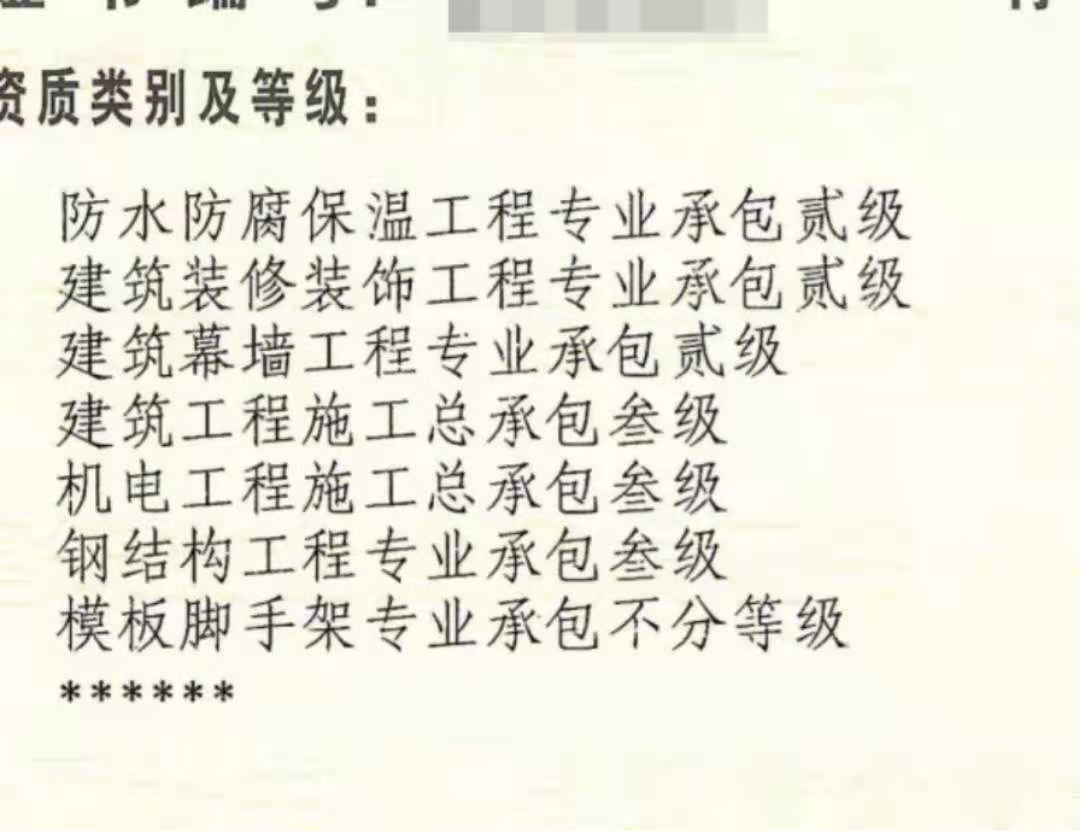 资质类别及等级：
防水防腐保温工程专业承包贰级
建筑装修装饰工程专业承包贰级
建筑幕墙工程专业承包贰级
建筑工程施工总承包叁级
机电工程施工总承包叁级
钢结构工程专业承包叁级
模板脚手架专业承包不分等级
******